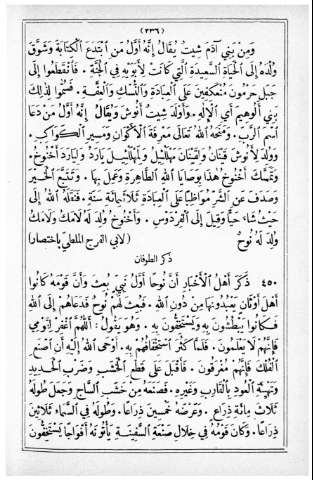 (٢٣٦)
وَمِنْ بَنِي آدَمَ شِيتُ يُقَالُ إِنَّهُ أَوَّلُ مَنِ ٱبْتَدَعَ ٱلْكِتَابَةَ وَشَوَّقَ
وُلْدَهُ إِلَى ٱلْحَيَاةِ ٱلسَّعِيدَةِ ٱلَّتِي كَانَتْ لِأَبَوَيْهِ فِي ٱلْجَنَّةِ . فَٱنْقَطَعُوا إِلَى
جَبَلِ حَرْمُونَ مُنْعَكِفِينَ عَلَى ٱلْعِبَادَةِ وَٱلنُّسْكِ وَٱلْعِفَّةِ . فَسُمُّوا لِذٰلِكَ
بَنِي أَلُوهِيمَ أَيِ ٱلْإِلٰهِ . وَأَوْلَدَ شِيتُ أَنُوشَ وَيُقَالُ إِنَّهُ أَوَّلُ مَنْ دَعَا
ٱسْمَ ٱلرَّبِّ . وَمَنَحَهُ ٱللهُ تَعَالَى مَعْرِفَةَ ٱلْأَكْوَانِ وَمَسِيرِ ٱلْكَوَاكِبِ .
وَوُلِدَ لِأَنُوشَ قَيْنَانُ وَلِقَيْنَانَ مَهْلَلْئِيلُ وَلِمَهْلَلْئِيلَ يَارَدُ وَلِيَارَدَ أَخْنُوخُ .
وَتَمَسَّكَ أَخْنُوخُ هٰذَا بِوَصَايَا ٱللهِ ٱلطَّاهِرَةِ وَعَمِلَ بِهَا . وَتَتَبَّعَ ٱلْخَيْرَ
وَصَدَفَ عَنِ ٱلشَّرِّ مُوَاظِبًا عَلَى ٱلْعِبَادَةِ ثَلَاثَمِائَةِ سَنَةٍ . فَنَقَلَهُ ٱللهُ إِلَى
حَيْثُ شَاءَ حَيًّا وَقِيلَ إِلَى ٱلْفِرْدَوْسِ . وَأَخْنُوخُ وُلِدَ لَهُ لَامَكُ وَلَامَكُ
وُلِدَ لَهُ نُوحٌ (لابي الفرج الملطي باختصار)
ذكر الطوفان
٤٥٠ ذَكَرَ أَهْلُ ٱلْأَخْبَارِ أَنَّ نُوحًا أَوَّلُ نَبِيٍّ بُعِثَ وَأَنَّ قَوْمَهُ كَانُوا
أَهْلَ أَوْثَانٍ يَعْبُدُونَهَا مِنْ دُونِ ٱللهِ . فَبُعِثَ لَهُمْ نُوحٌ فَدَعَاهُمْ إِلَى ٱللهِ
فَكَانُوا يَبْطُشُونَ بِهِ وَيَسْتَخِفُّونَ بِهِ . وَهُوَ يَقُولُ : ٱللّٰهُمَّ ٱغْفِرْ لِقَوْمِي
فَإِنَّهُمْ لَا يَعْلَمُونَ . فَلَمَّا كَثُرَ ٱسْتِخْفَافُهُمْ بِهِ . أَوْحَى ٱللهُ إِلَيْهِ أَنِ ٱصْنَعِ
ٱلْفُلْكَ فَإِنَّهُمْ مُغْرَقُونَ . فَأَقْبَلَ عَلَى قَطْعِ ٱلْخَشَبِ وَضَرْبِ ٱلْحَدِيدِ
وَتَهْيِئَةِ ٱلْعُودِ بِٱلْقَارِ وَغَيْرِهِ . فَصَنَعَهُ مِنْ خَشَبِ ٱلسَّاجِ وَجَعَلَ طُولَهُ
ثَلَاثَ مِائَةِ ذِرَاعٍ . وَعَرْضَهُ خَمْسِينَ ذِرَاعًا . وَطُولَهُ فِي ٱلسَّمَاءِ ثَلَاثِينَ
ذِرَاعًا . وَكَانَ قَوْمُهُ فِي خِلَالِ صَنْعَةِ ٱلسَّفِينَةِ يَأْتُونَهُ أَفْوَاجًا يَسْتَخِفُّونَ